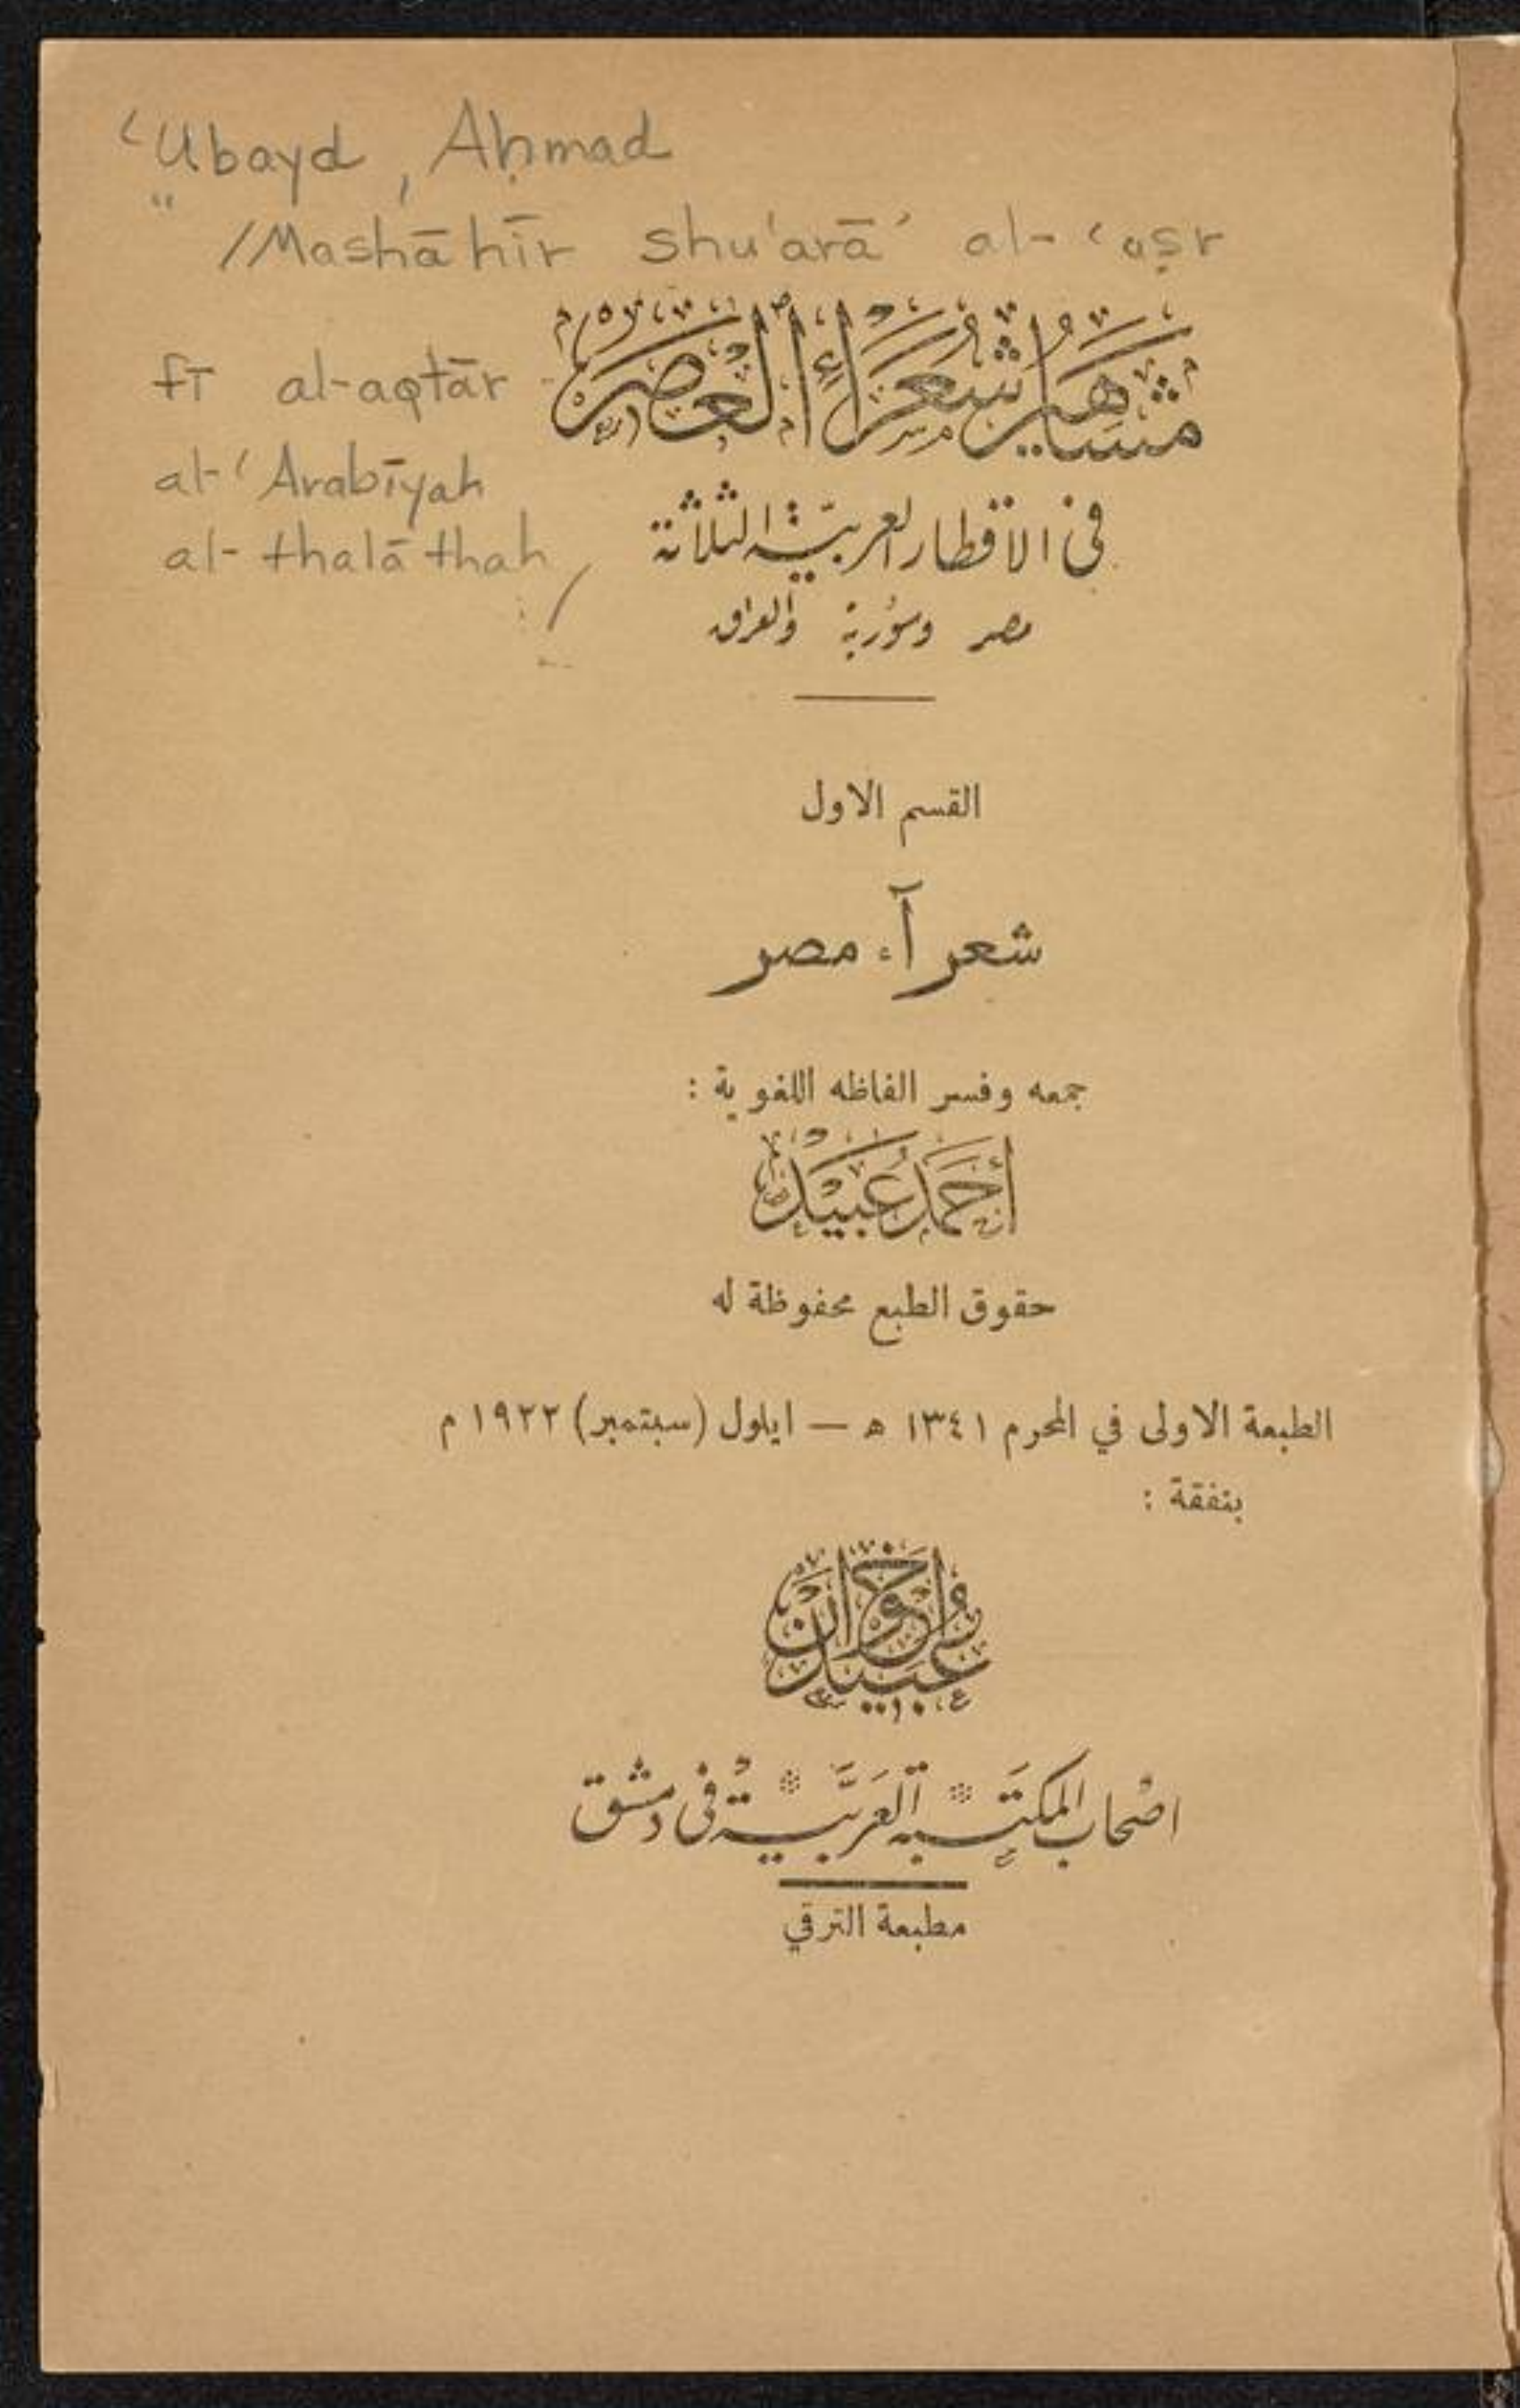 ‘Ubayd, Aḥmad
/Mashāhīr shu'arā' al-‘aṣr
fī al-aqtār
al-‘Arabīyah
al-thalāthah/
مَشَاهِيرُ شُعَرَاءِ الْعَصْرِ
في الأقطار العربيّة الثلاثة
مصر وسورية والعراق
القسم الاول
شعرآء مصر
جمعه وفسر الفاظه اللغوية :
أَحْمَد عُبَيْد
حقوق الطبع محفوظة له
الطبعة الاولى في المحرم ١٣٤١ ه — ايلول (سبتمبر) ١٩٢٢ م
بنفقة :
عُبَيْد إخْوَان
اصْحاب المكتَبة العَربَّية في دمشق
مطبعة الترقي